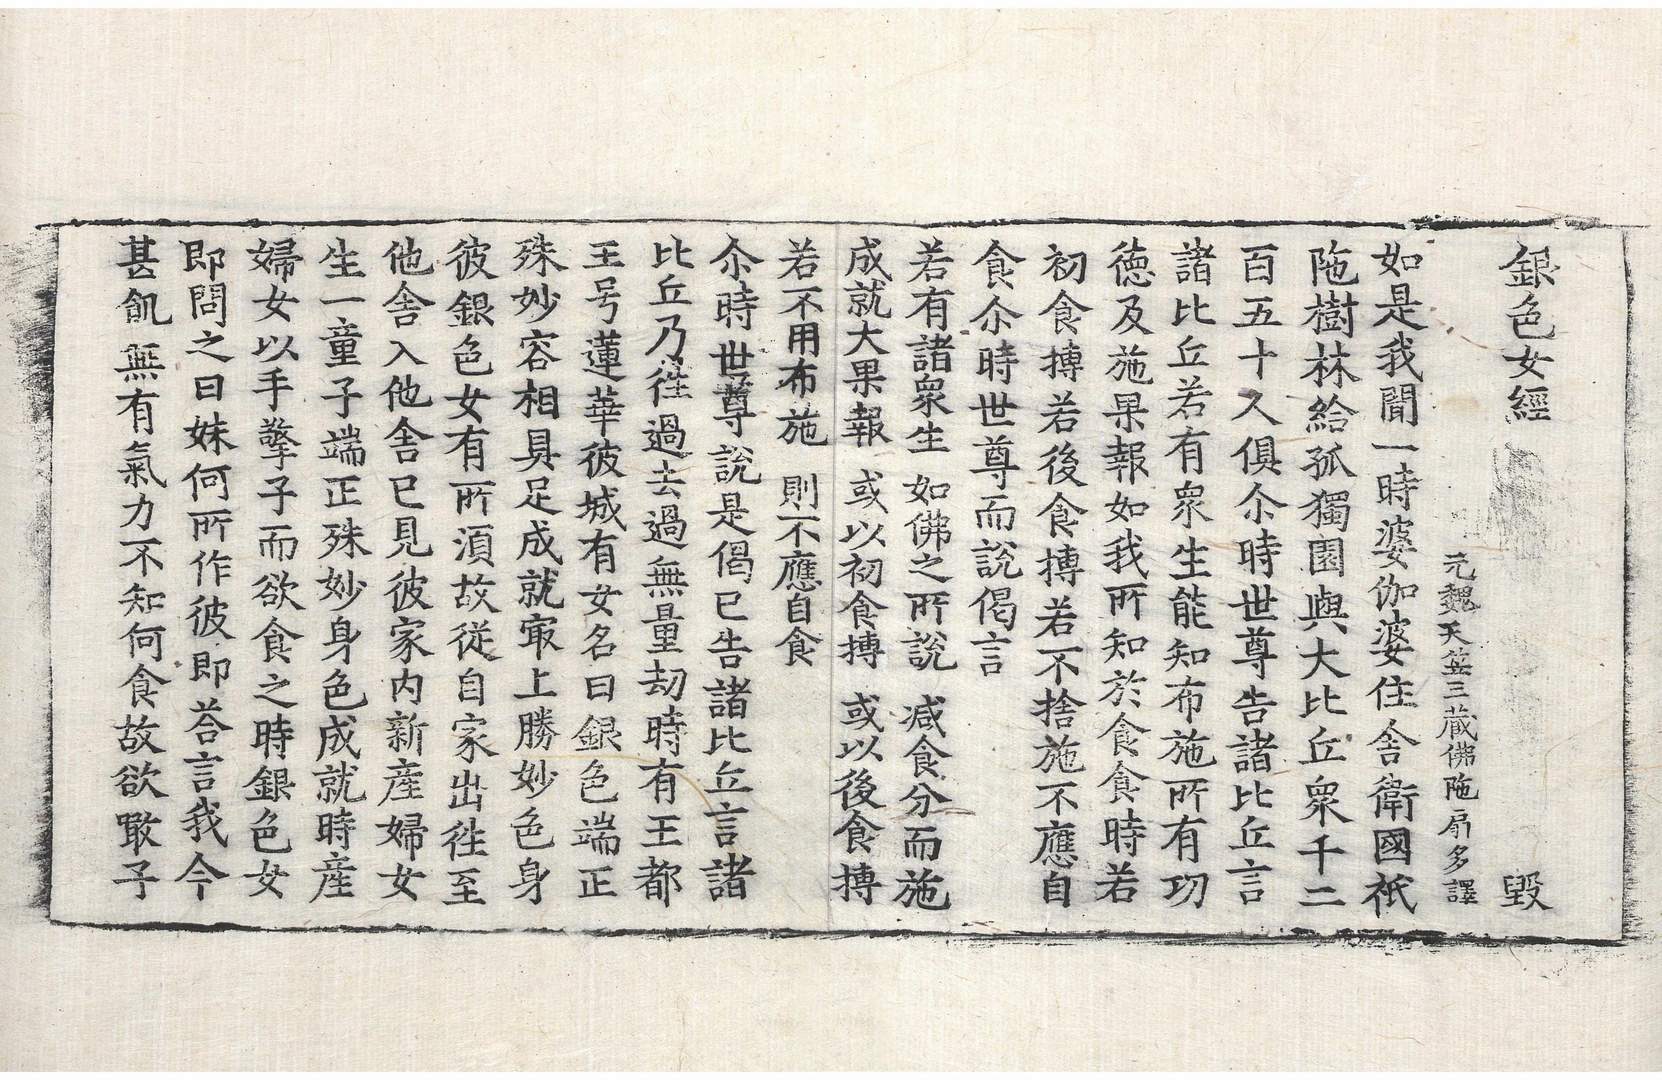 銀色女經 毀
元魏天竺三藏佛陁扇多譯
如是我聞一時婆伽婆住舍衛國祇
陁樹林給孤獨園與大比丘衆千二
百五十人俱尒時世尊告諸比丘言
諸比丘若有衆生能知布施所有功
徳及施果報如我所知於食食時若
初食摶若後食摶若不捨施不應自
食尒時世尊而說偈言
若有諸衆生 如佛之所說 減食分而施
成就大果報 或以初食摶 或以後食摶
若不用布施 則不應自食
尒時世尊說是偈已告諸比丘言諸
比丘乃徃過去過無量劫時有王都
王号蓮華彼城有女名曰銀色端正
殊妙容相具足成就㝡上勝妙色身
彼銀色女有所湏故從自家出徃至
他舍入他舍已見彼家内新産婦女
生一童子端正殊妙身色成就時産
婦女以手擎子而欲食之時銀色女
即問之曰妹何所作彼即荅言我今
甚飢無有氣力不知何食故欲噉子